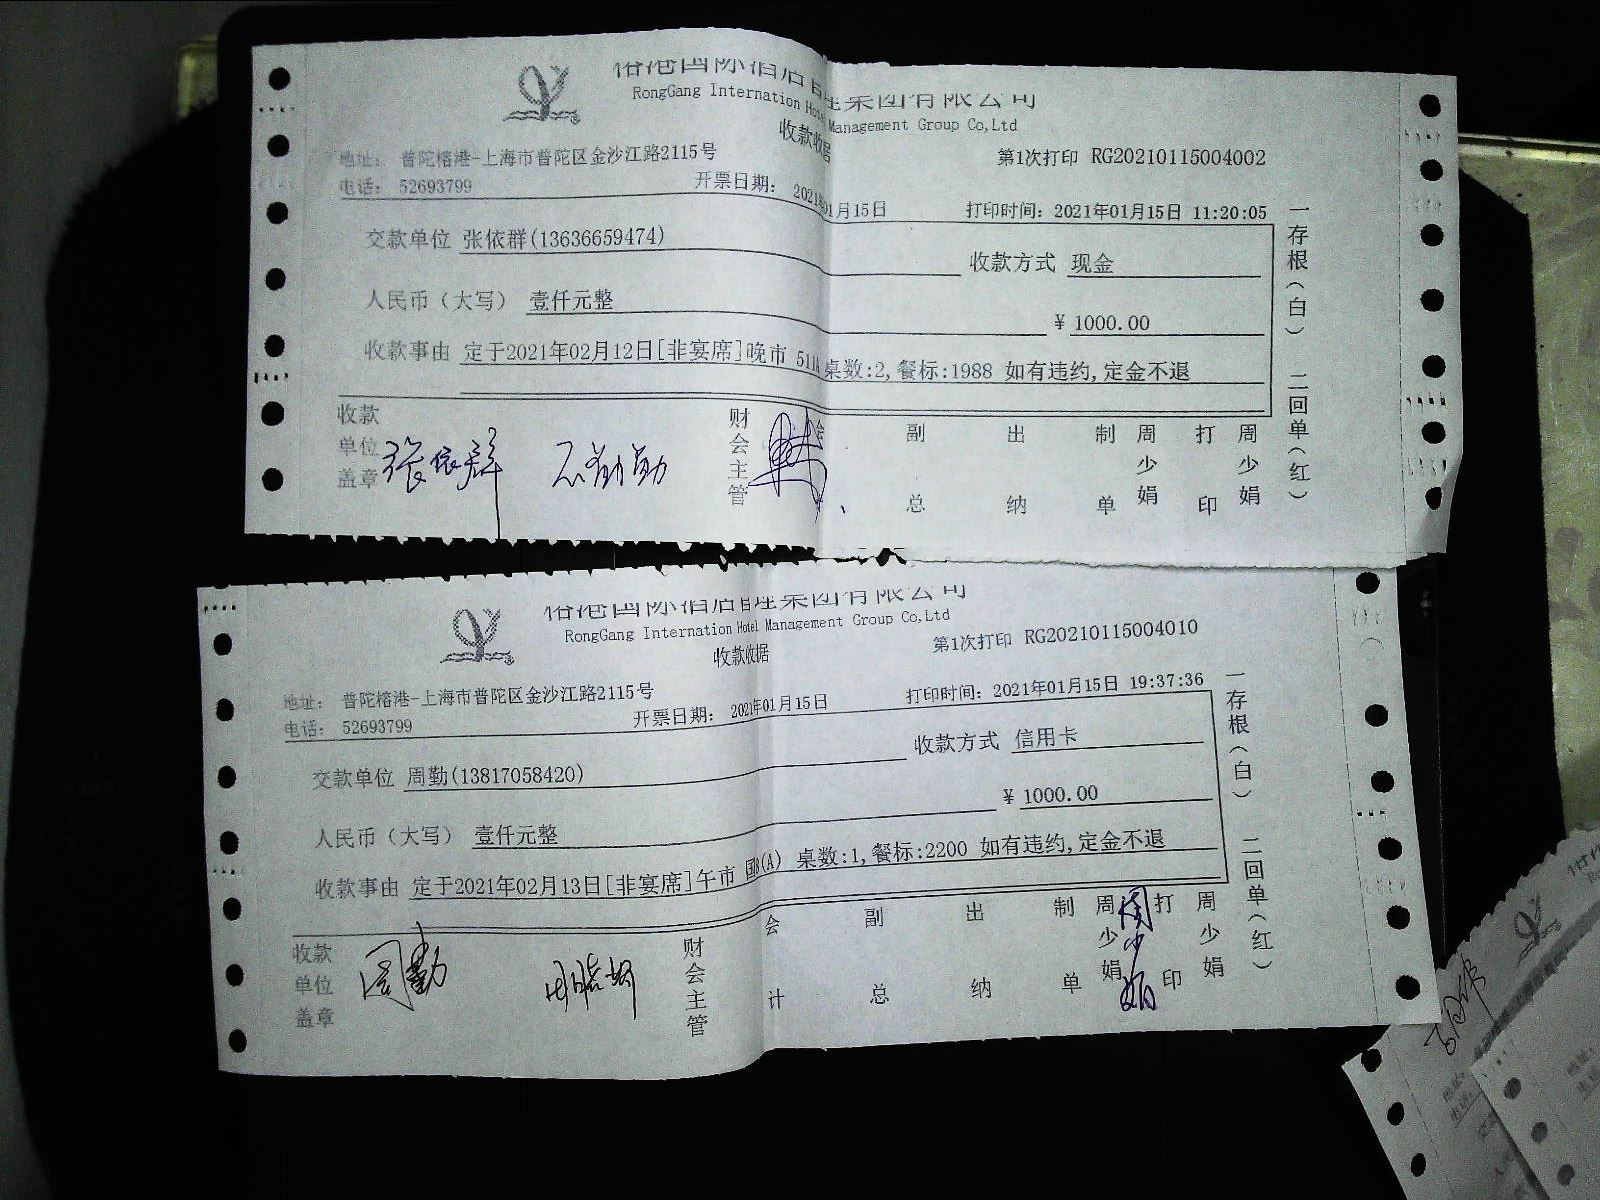 榕港国际酒店管理集团有限公司
RongGang International Hotel Management Group Co,Ltd
收款收据
地址: 普陀榕港-上海市普陀区金沙江路2115号
第1次打印 RG20210115004002
电话: 52693799
开票日期: 2021年01月15日
打印时间: 2021年01月15日 11:20:05
交款单位 张依群(13636659474)
收款方式 现金
人民币(大写) 壹仟元整
¥ 1000.00
收款事由 定于2021年02月12日[非宴席]晚市 511A 桌数:2,餐标:1988 如有违约,定金不退
收款单位盖章 张依群
财会主管
会
副总
出纳
制单 周少娟
打印 周少娟
一存根(白) 二回单(红)
榕港国际酒店管理集团有限公司
RongGang International Hotel Management Group Co,Ltd
收款收据
第1次打印 RG20210115004010
地址: 普陀榕港-上海市普陀区金沙江路2115号
电话: 52693799
开票日期: 2021年01月15日
打印时间: 2021年01月15日 19:37:36
交款单位 周勤(13817058420)
收款方式 信用卡
人民币(大写) 壹仟元整
¥ 1000.00
收款事由 定于2021年02月13日[非宴席]午市 国B(A) 桌数:1,餐标:2200 如有违约,定金不退
收款单位盖章 周勤
财会主管
会计
副总
出纳
制单 周少娟 周少娟
打印 周少娟
一存根(白) 二回单(红)